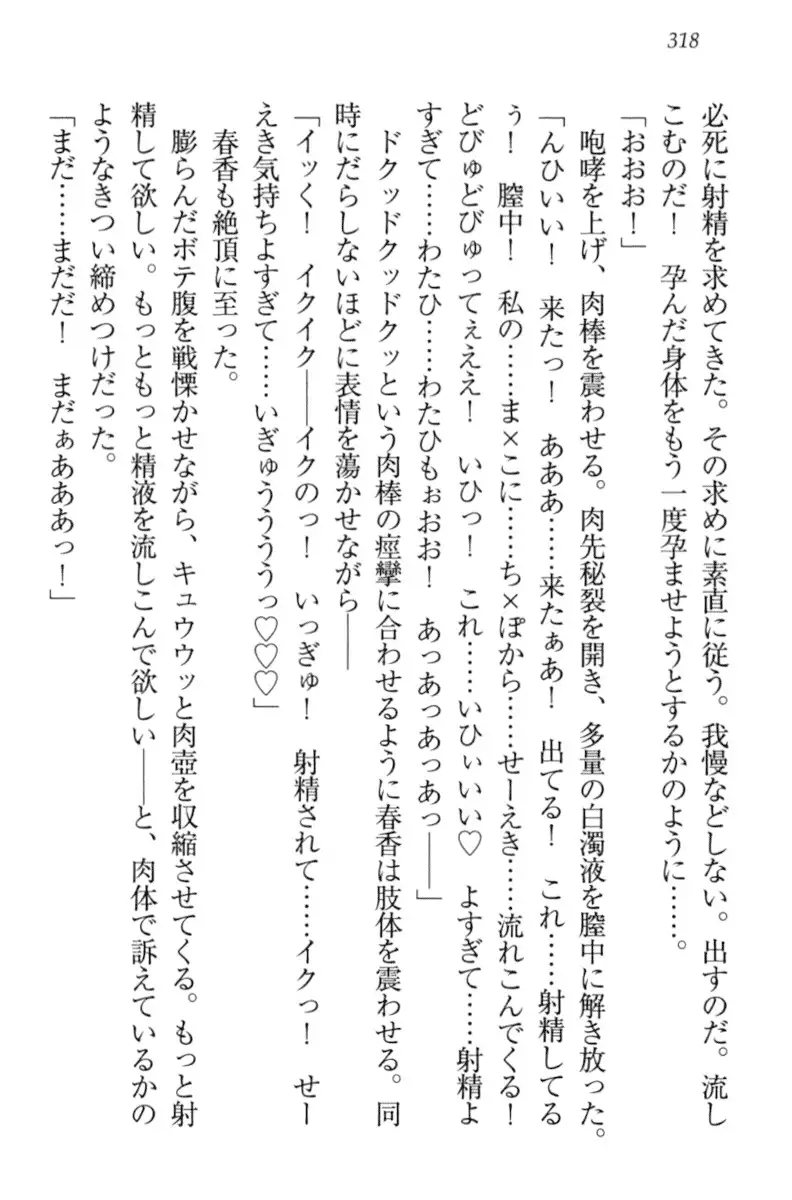 318
必死に射精を求めてきた。その求めに素直に従う。我慢などしない。出すのだ。流し
こむのだ！　孕んだ身体をもう一度孕ませようとするかのように……。
「おおお！」
　咆哮を上げ、肉棒を震わせる。肉先秘裂を開き、多量の白濁液を膣中に解き放った。
「んひいい！　来たっ！　あああ……来たぁあ！　出てる！　これ……射精してる
ぅ！　膣中！　私の……ま×こに……ち×ぽから……せーえき……流れこんでくる！
どびゅどびゅってぇええ！　いひっ！　これ……いひぃいい♡　よすぎて……射精よ
すぎて……わたひ……わたひもぉおお！　あっあっあっあっ――」
　ドクッドクッドクッという肉棒の痙攣に合わせるように春香は肢体を震わせる。同
時にだらしないほどに表情を蕩かせながら――
「イッく！　イクイク――イクのっ！　いっぎゅ！　射精されて……イクっ！　せー
えき気持ちよすぎて……いぎゅうううっ♡♡♡」
　春香も絶頂に至った。
　膨らんだボテ腹を戦慄かせながら、キュウウッと肉壺を収縮させてくる。もっと射
精して欲しい。もっともっと精液を流しこんで欲しい――と、肉体で訴えているかの
ようなきつい締めつけだった。
「まだ……まだだ！　まだぁあああっ！」